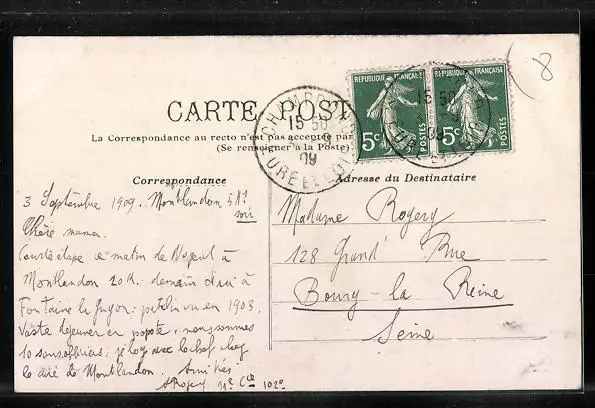 8
REPUBLIQUE FRANÇAISE
5c POSTES
REPUBLIQUE FRANÇAISE
5c POSTES
CARTE POST
La Correspondance au recto n'est pas acceptée par
(Se renseigner à la Poste)
15 50
09
EURE ET LOIR
Correspondance
Adresse du Destinataire
3 Septembre 1909. Montlandon
soir
Chère maman
Courte étape ce matin de Nogent à
Montlandon 20 K. demain d'ici à
Fontaine la Guyon: petelin vu en 1903.
Vaste déjeuner en popote: nous sommes
10 sous officiers: je log avec le chef chez
le curé de Montlandon. Amitiés
ARogery 11e Cie 102e
Madame Rogery
128 Grand' Rue
Bourg la Reine
Seine